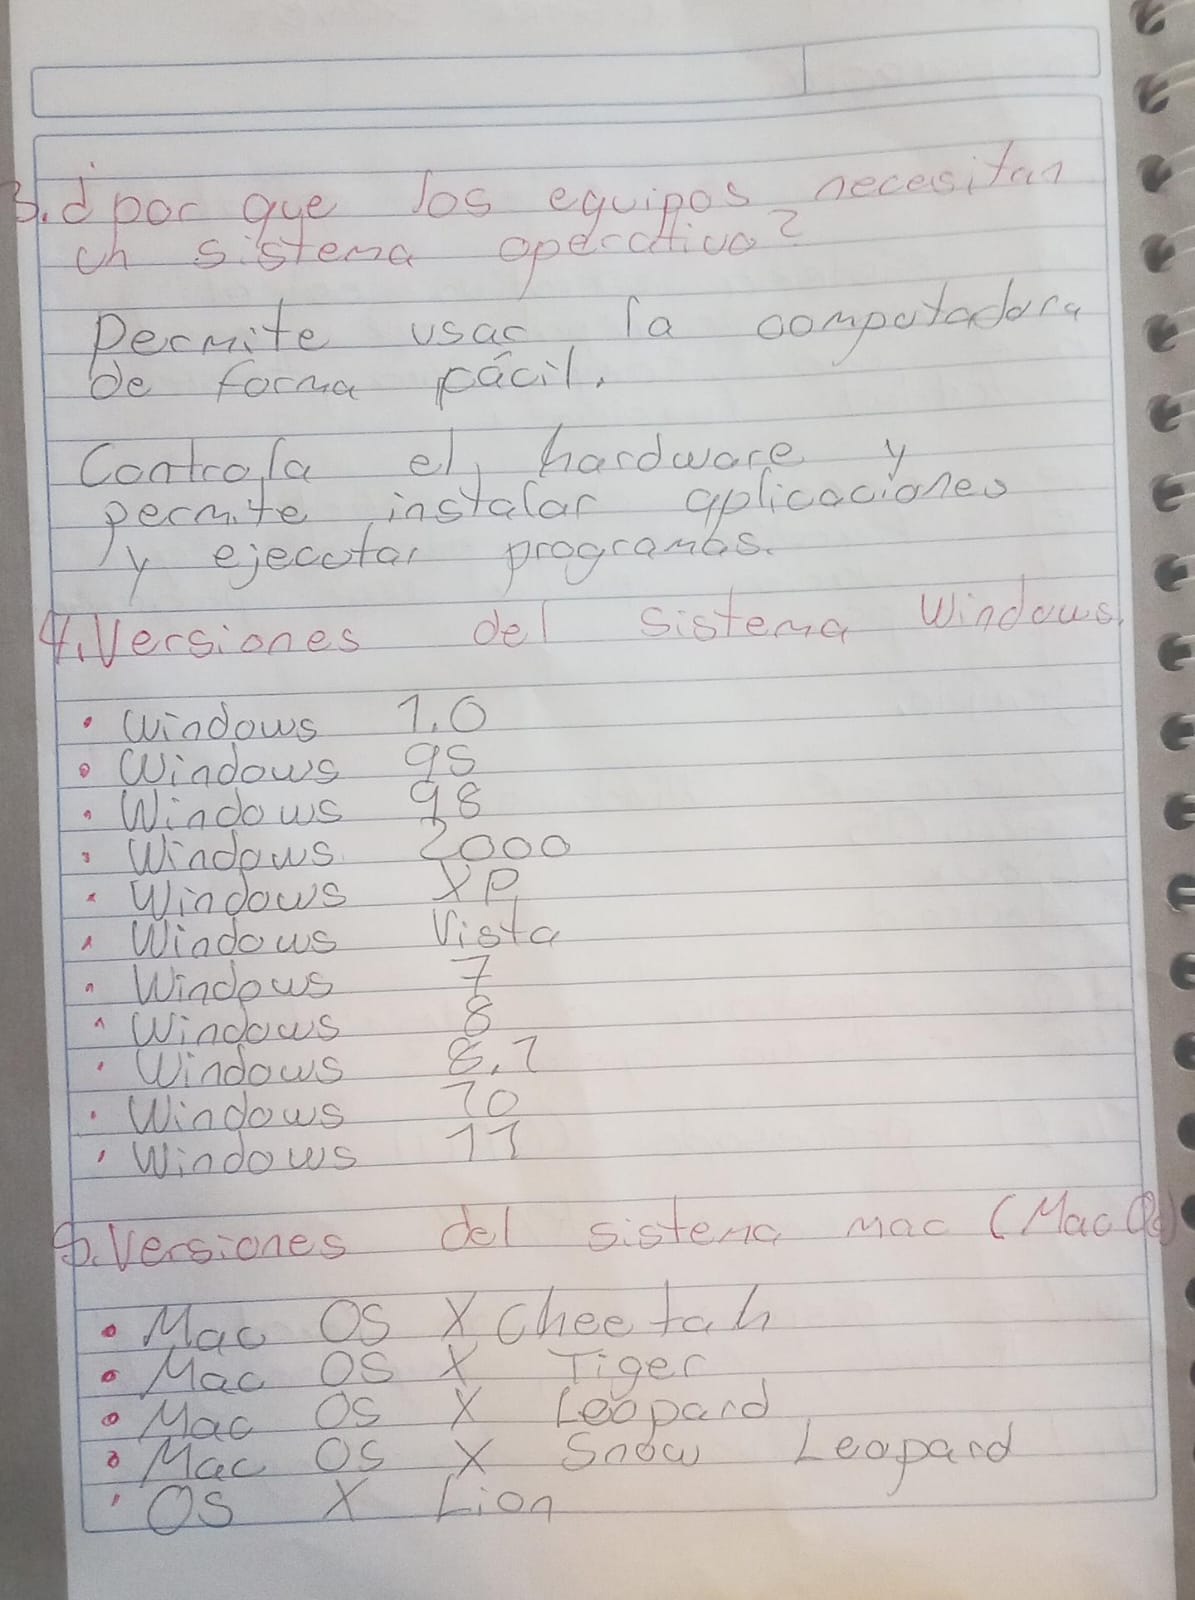 3. ¿por que los equipos necesitan
un sistema operativo?
Permite usar la computadora
de forma fácil.
Controla el hardware y
permite instalar aplicaciones
y ejecutar programas.
4. Versiones del sistema Windows.
• Windows 1.0
• Windows 95
• Windows 98
• Windows 2000
• Windows XP
• Windows Vista
• Windows 7
• Windows 8
• Windows 8.1
• Windows 10
• Windows 11
5. Versiones del sistema mac (MacOs)
• Mac OS X Cheetah
• Mac OS X Tiger
• Mac OS X Leopard
• Mac OS X Snow Leopard
• OS X Lion